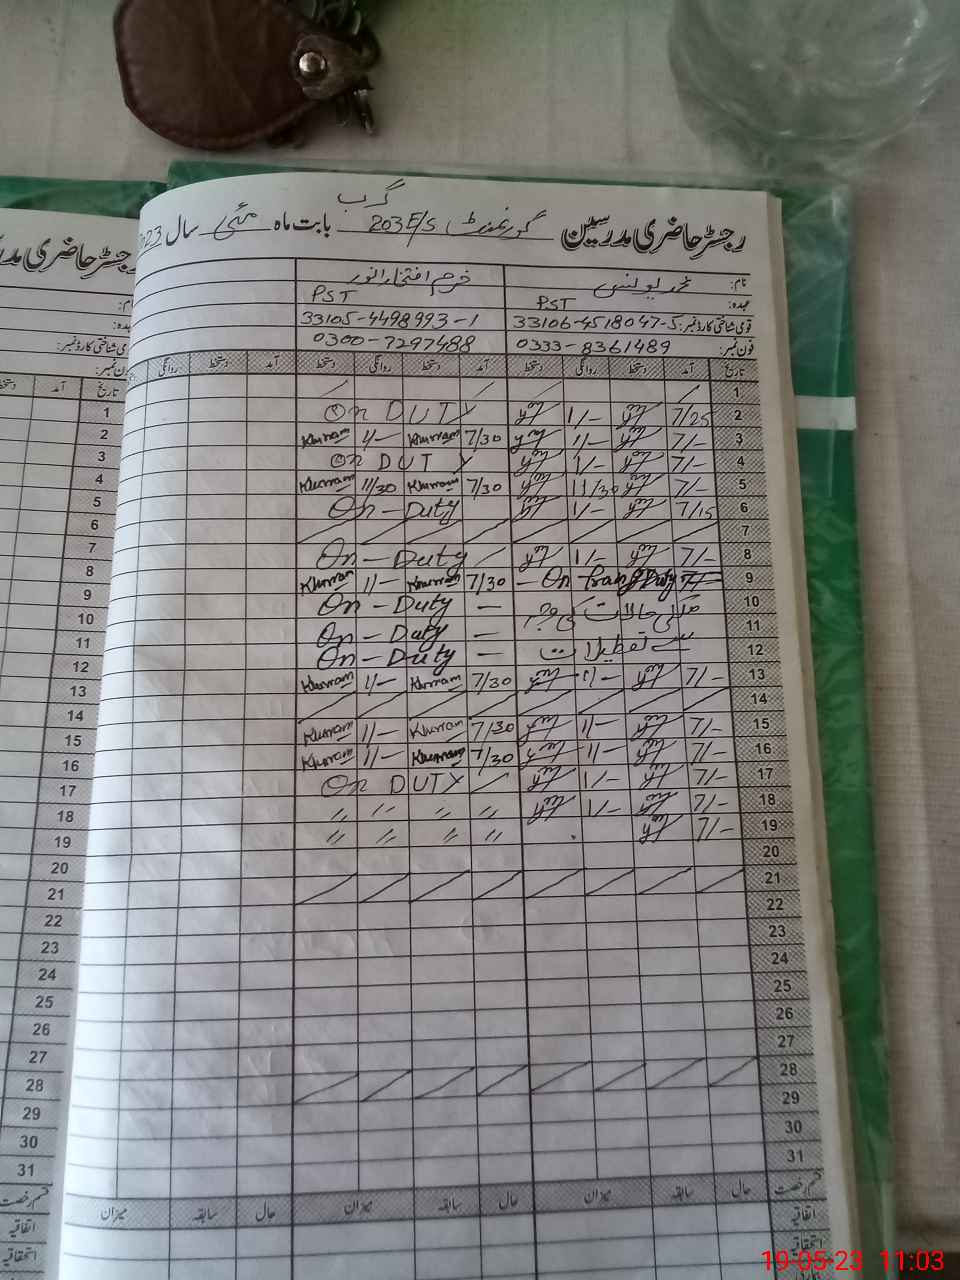 رجسٹر حاضری مدرسین گورنمنٹ 203 E/S گ ب بابت ماہ مئی سال 2023
نام: محمد یونس خرم افتخار انور
عہدہ: PST PST
قومی شناختی کارڈ نمبر: 33106-4518047-5 33105-4498993-1
فون نمبر: 0333-8361489 0300-7297488
تاریخ آمد دستخط روانگی دستخط آمد دستخط روانگی دستخط آمد دستخط روانگی
1
2 7/25 1/- On DUTY
3 7/- 1/- 7/30 Khurram 1/- Khurram
4 7/- 1/- On DUTY
5 7/- 11/30 7/30 Khurram 11/30 Khurram
6 7/15 1/- On-Duty
7
8 7/- 1/- On-Duty
9 7/- On Duty 7/30 Khurram 1/- Khurram
10 ملکی حالات کی وجہ On-Duty
11 On-Duty
12 سے تعطیلات On-Duty
13 7/- 1/- 7/30 Khurram 1/- Khurram
14
15 7/- 1/- 7/30 Khurram 1/- Khurram
16 7/- 1/- 7/30 Khurram 1/- Khurram
17 7/- 1/- On DUTY
18 7/- 1/- 〃 〃 〃 〃
19 7/- 〃 〃 〃 〃
20
21
22
23
24
25
26
27
28
29
30
31
قسم رخصت حال سابقہ میزان حال سابقہ میزان حال سابقہ میزان
اتفاقیہ
استحقاقیہ
رجسٹر حاضری
نام:
عہدہ:
قومی شناختی کارڈ نمبر:
فون نمبر:
تاریخ آمد دستخط
1
2
3
4
5
6
7
8
9
10
11
12
13
14
15
16
17
18
19
20
21
22
23
24
25
26
27
28
29
30
31
قسم رخصت
اتفاقیہ
استحقاقیہ
19-05-23 11:03